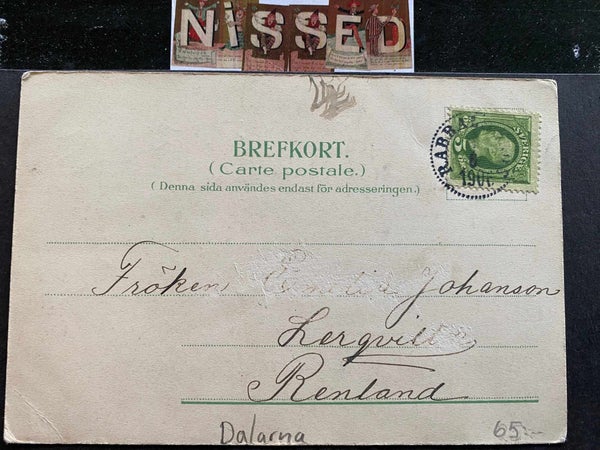 NiSSED
BREFKORT.
(Carte postale.)
(Denna sida användes endast för adresseringen.)
SVERIGE
RABBA
1901
Fröken Johanson
Renland
Dalarna
65:-